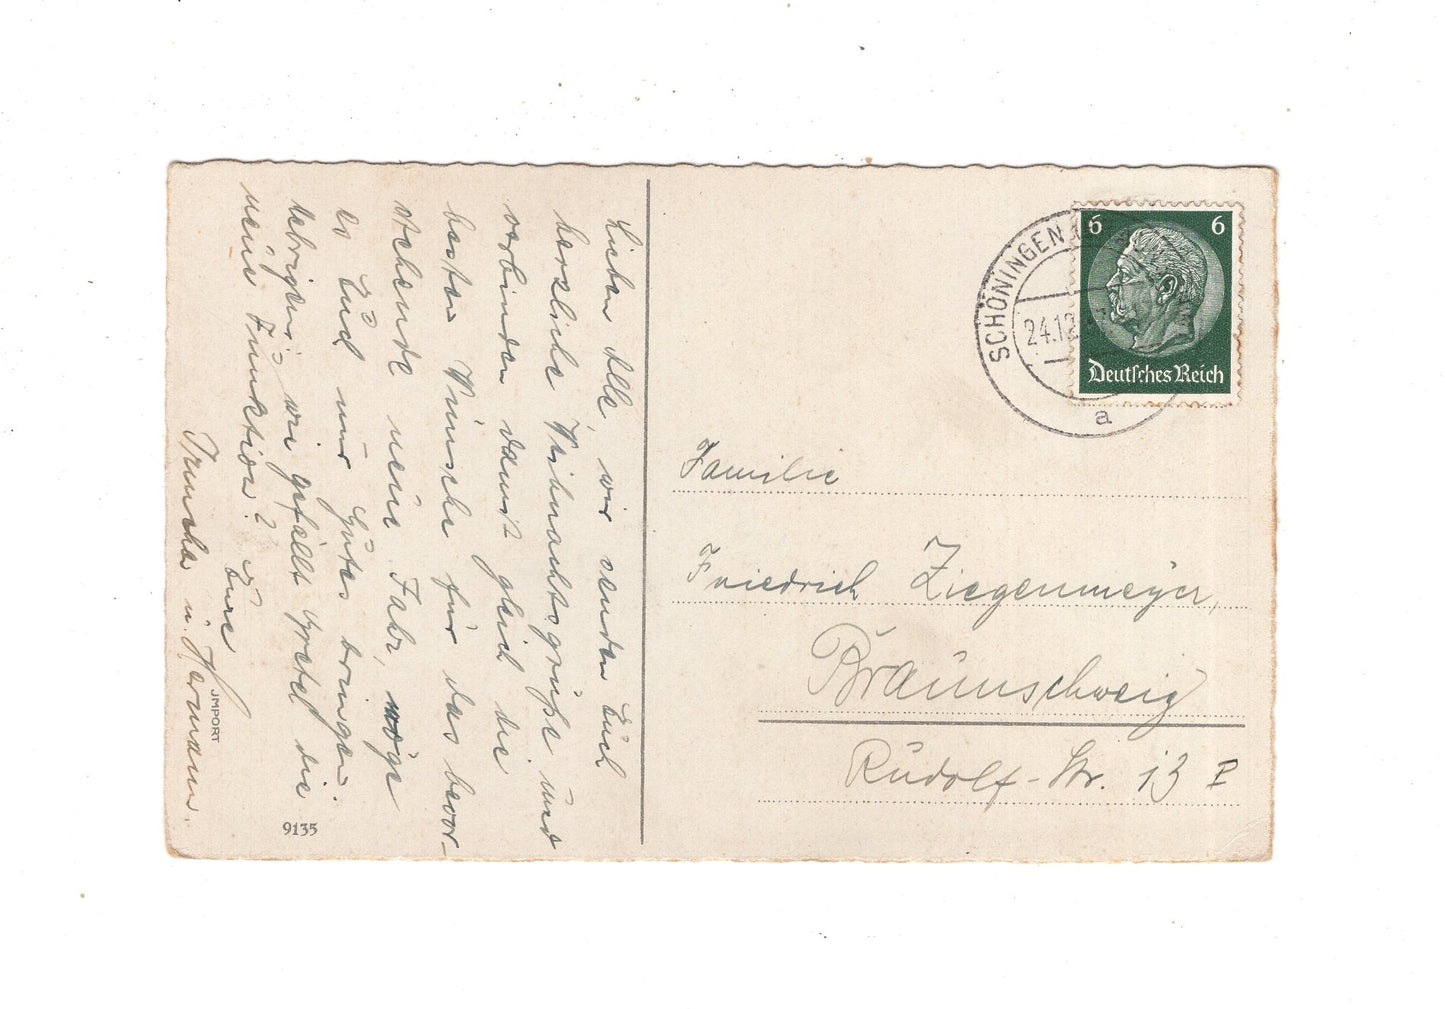 Lieben Alle, wir senden Euch
herzliche Weihnachtsgrüße und
verbinden damit gleich die
besten Wünsche für das bevor-
stehende neue Jahr, möge
es Euch nur Gutes bringen.
Uebrigens, wie gefällt Gretel die
neue Funktion?
Eure
u. Hermann.
JMPORT
9135
SCHÖNINGEN
24.12
a
6 6
Deutsches Reich
Familie
Friedrich Ziegenmeyer,
Braunschweig
Rudolf-Str. 13 I